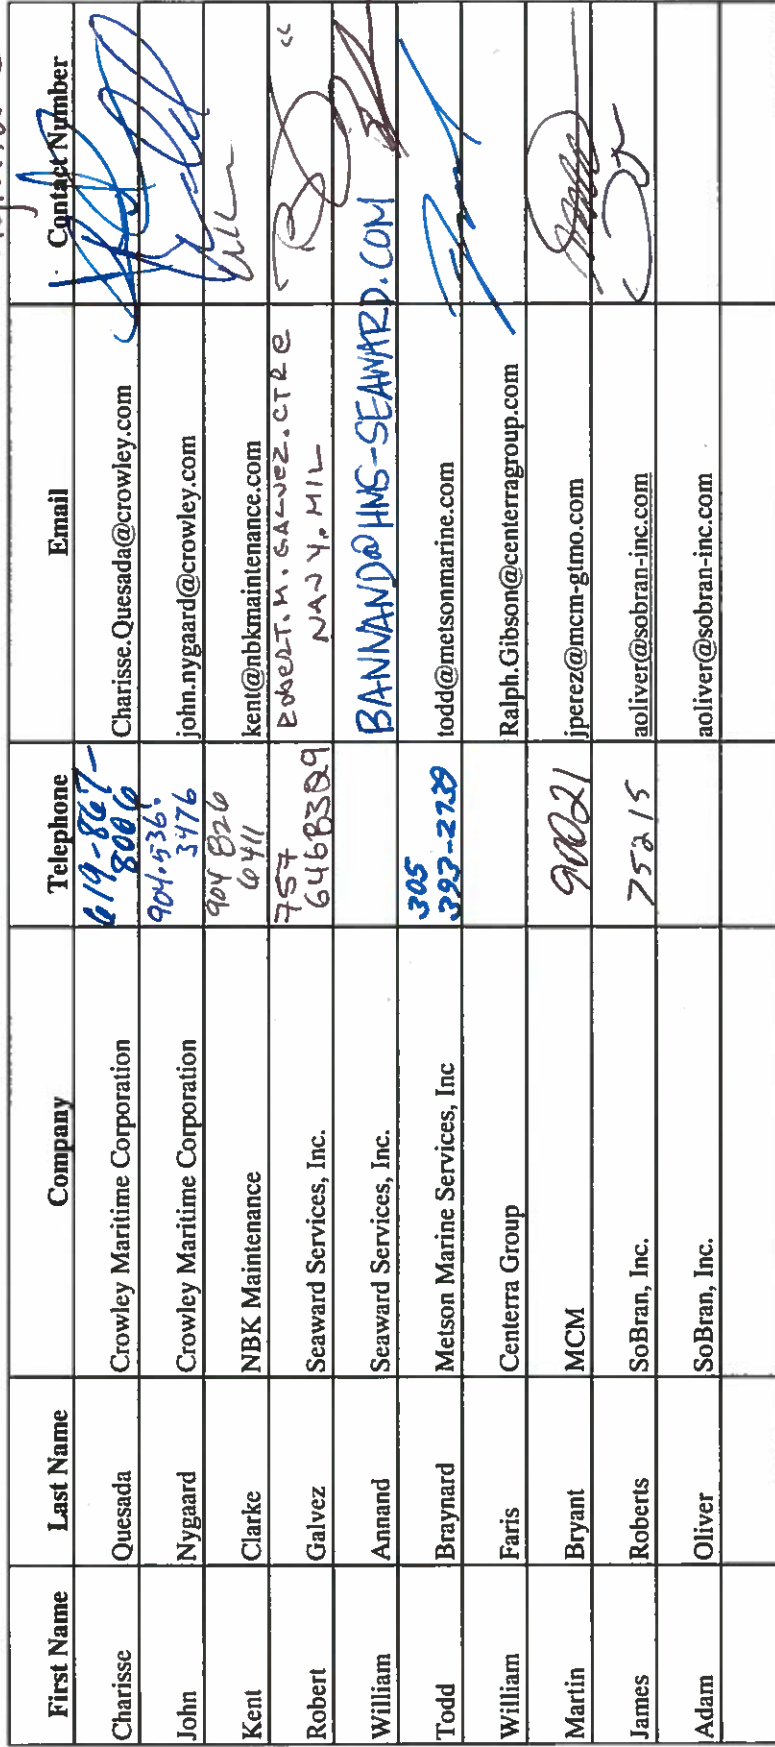 First Name Last Name Company Telephone Email Contact Number
Charisse Quesada Crowley Maritime Corporation 619-867-8006 Charisse.Quesada@crowley.com
John Nygaard Crowley Maritime Corporation 904.536.3476 john.nygaard@crowley.com
Kent Clarke NBK Maintenance 904 826 6411 kent@nbkmaintenance.com
Robert Galvez Seaward Services, Inc. 757 646 8329 ROBERT.M.GALVEZ.CTR@NAVY.MIL
William Annand Seaward Services, Inc. BANNAND@HMS-SEAWARD.COM
Todd Braynard Metson Marine Services, Inc 305 393-2739 todd@metsonmarine.com
William Faris Centerra Group Ralph.Gibson@centerragroup.com
Martin Bryant MCM 90021 jperez@mcm-gtmo.com
James Roberts SoBran, Inc. 75215 aoliver@sobran-inc.com
Adam Oliver SoBran, Inc. aoliver@sobran-inc.com